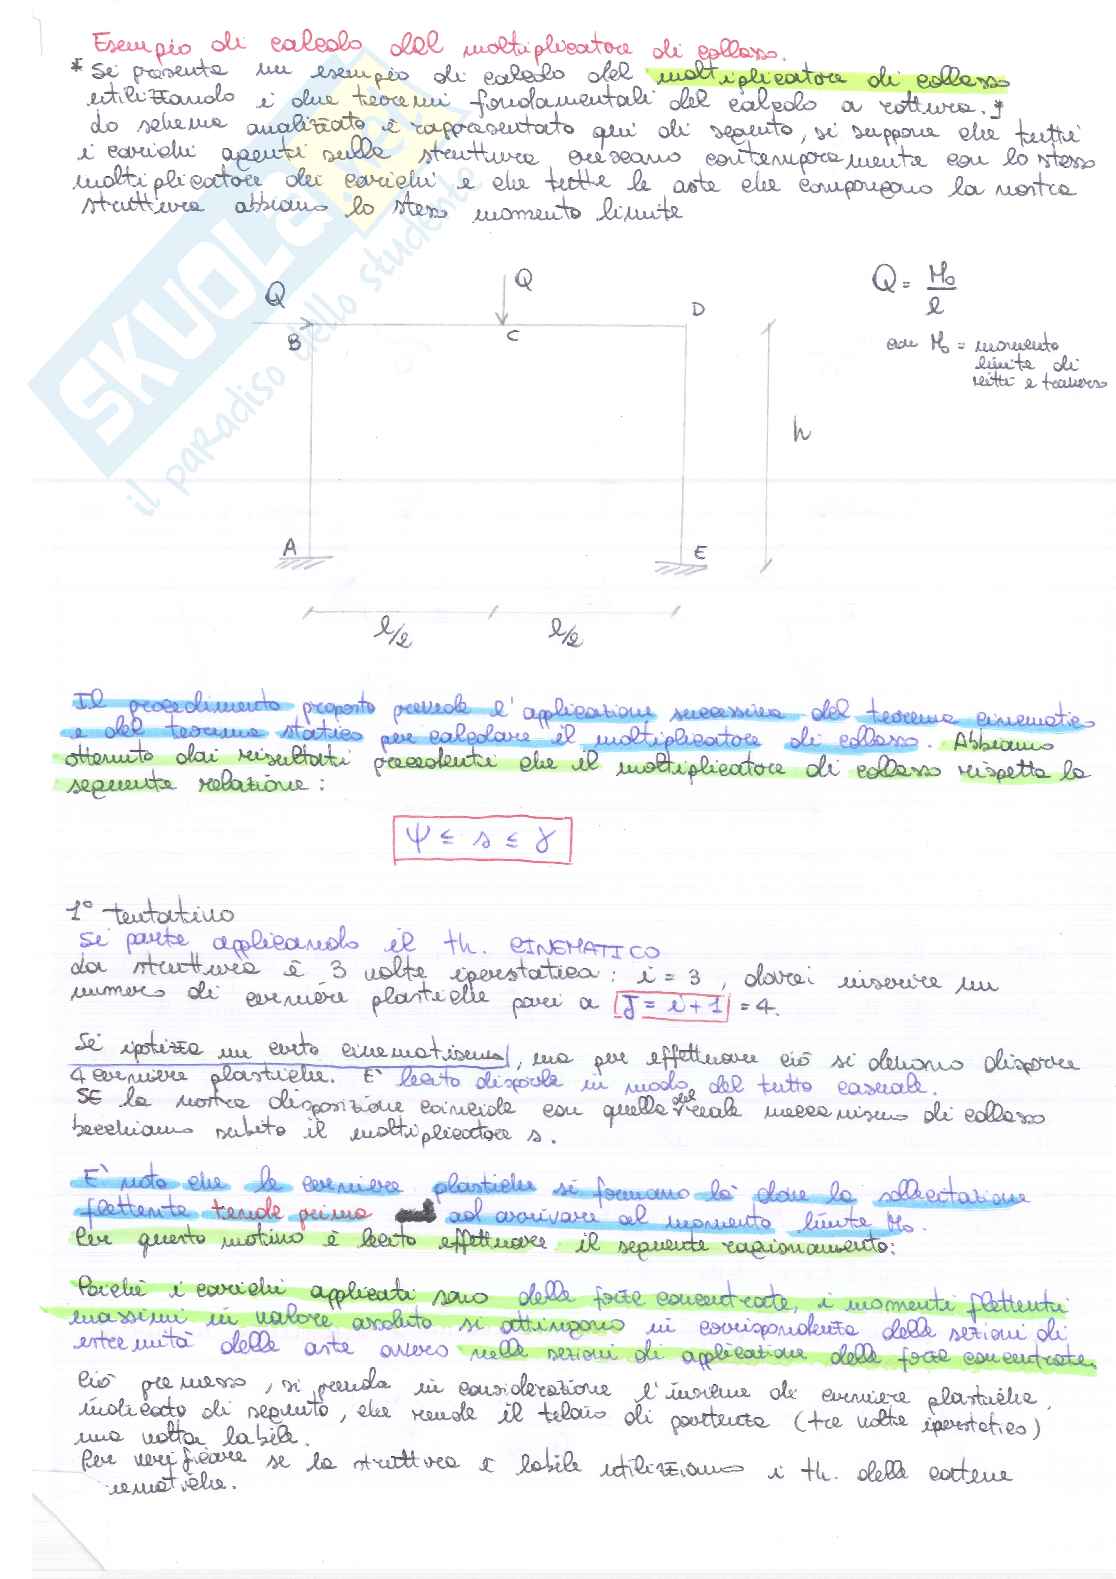 Esempio di calcolo del moltiplicatore di collasso.
* Si presenta un esempio di calcolo del moltiplicatore di collasso
utilizzando i due teoremi fondamentali del calcolo a rottura. *
Lo schema analizzato è rappresentato qui di seguito, si suppone che tutti
i carichi agenti sulla struttura crescano contemporaneamente con lo stesso
moltiplicatore dei carichi e che tutte le aste che compongono la nostra
struttura abbiano lo stesso momento limite
SKUOLA.net
il paradiso dello studente
Q
Q
Q = M₀/l
B
C
D
con M₀ = momento
limite di
ritti e traverso
h
A
E
l/2
l/2
Il procedimento proposto prevede l'applicazione successiva del teorema cinematico
e del teorema statico per calcolare il moltiplicatore di collasso. Abbiamo
ottenuto dai risultati precedenti che il moltiplicatore di collasso rispetta la
seguente relazione:
ψ ≤ s ≤ γ
1° tentativo
Si parte applicando il th. CINEMATICO
La struttura è 3 volte iperstatica: i = 3, dovrei inserire un
numero di cerniere plastiche pari a J = i + 1 = 4.
Si ipotizza un certo cinematismo, ma per effettuare ciò si devono disporre
4 cerniere plastiche. E' lecito disporle in modo del tutto casuale.
SE la nostra disposizione coincide con quella del reale meccanismo di collasso
becchiamo subito il moltiplicatore s.
E' noto che le cerniere plastiche si formano là dove la sollecitazione
flettente tende prima ad arrivare al momento limite M₀.
Per questo motivo è lecito effettuare il seguente ragionamento:
Poichè i carichi applicati sono delle forze concentrate, i momenti flettenti
massimi in valore assoluto si attingono in corrispondenza delle sezioni di
estremità delle aste ovvero nelle sezioni di applicazione delle forze concentrate.
Ciò premesso, si prenda in considerazione l'insieme di cerniere plastiche,
indicato di seguito, che rende il telaio di partenza (tre volte iperstatico)
una volta labile.
Per verificare se la struttura è labile utilizziamo i th. delle catene
cinematiche.